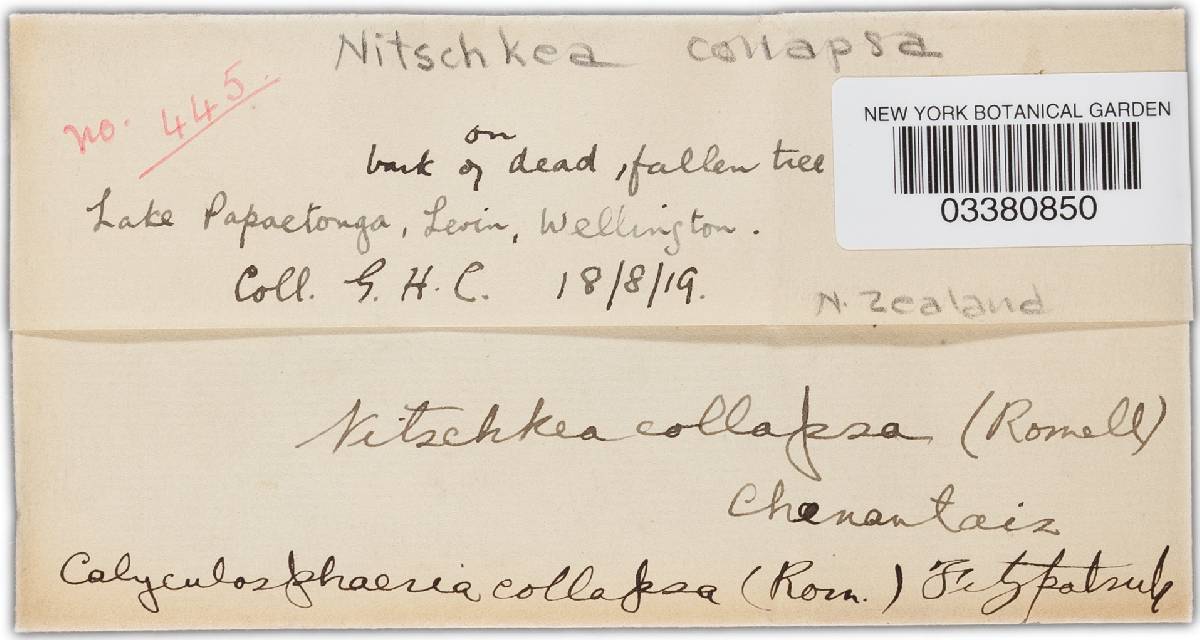 Nitschkea collapsa
no. 445.
NEW YORK BOTANICAL GARDEN
03380850
on
bark of dead, fallen tree
Lake Papaetonga, Levin, Wellington.
Coll. G. H. C. 18/8/19.
N. Zealand
Nitschkea collapsa (Romell)
Chenantais
Calyculosphaeria collapsa (Rom.) Fitzpatrick